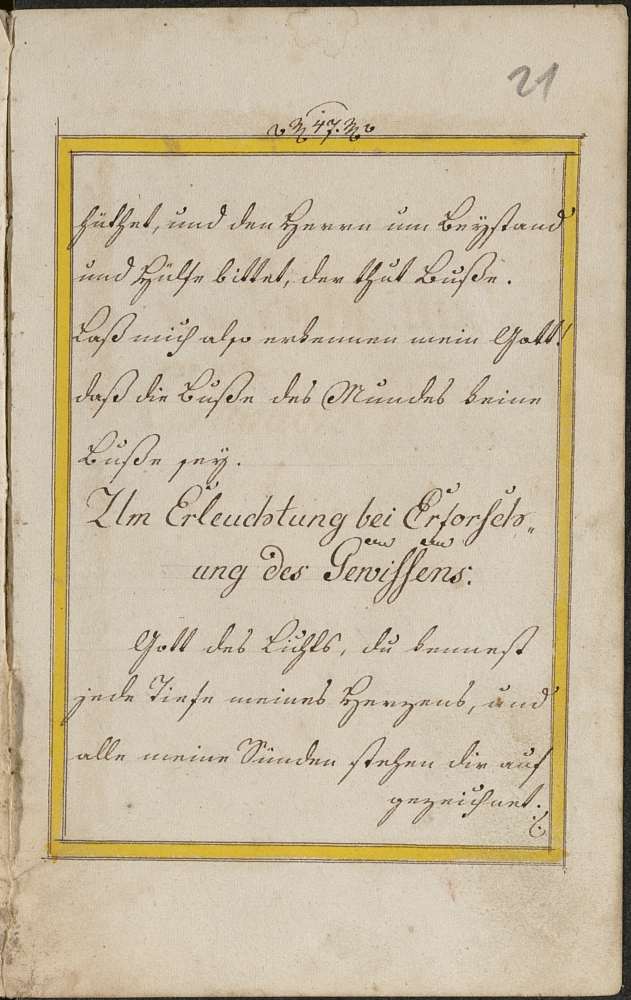 21
47.
hüthet, und den Herrn um Beystand
und Hülfe bittet, der thut Buße.
Laß mich also erkennen mein Gott!
daß die Buße des Mundes keine
Buße sey.
Um Erleuchtung bei Erforsch-
ung des Gewissens.
Gott des Lichts, du kennest
jede Tiefe meines Herzens, und
alle meine Sünden stehen dir auf
gezeichnet.